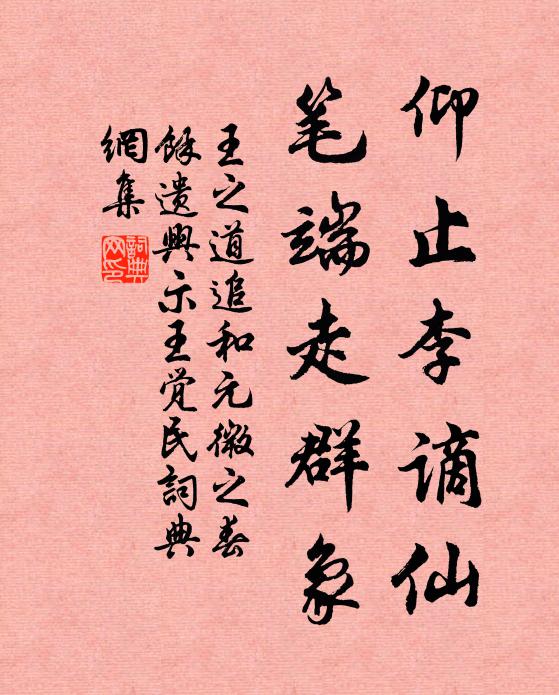 仰止李谪仙
笔端走群象
王之道追和元微之春
馀遗興示王觉民詞典
網集
詞典
网印